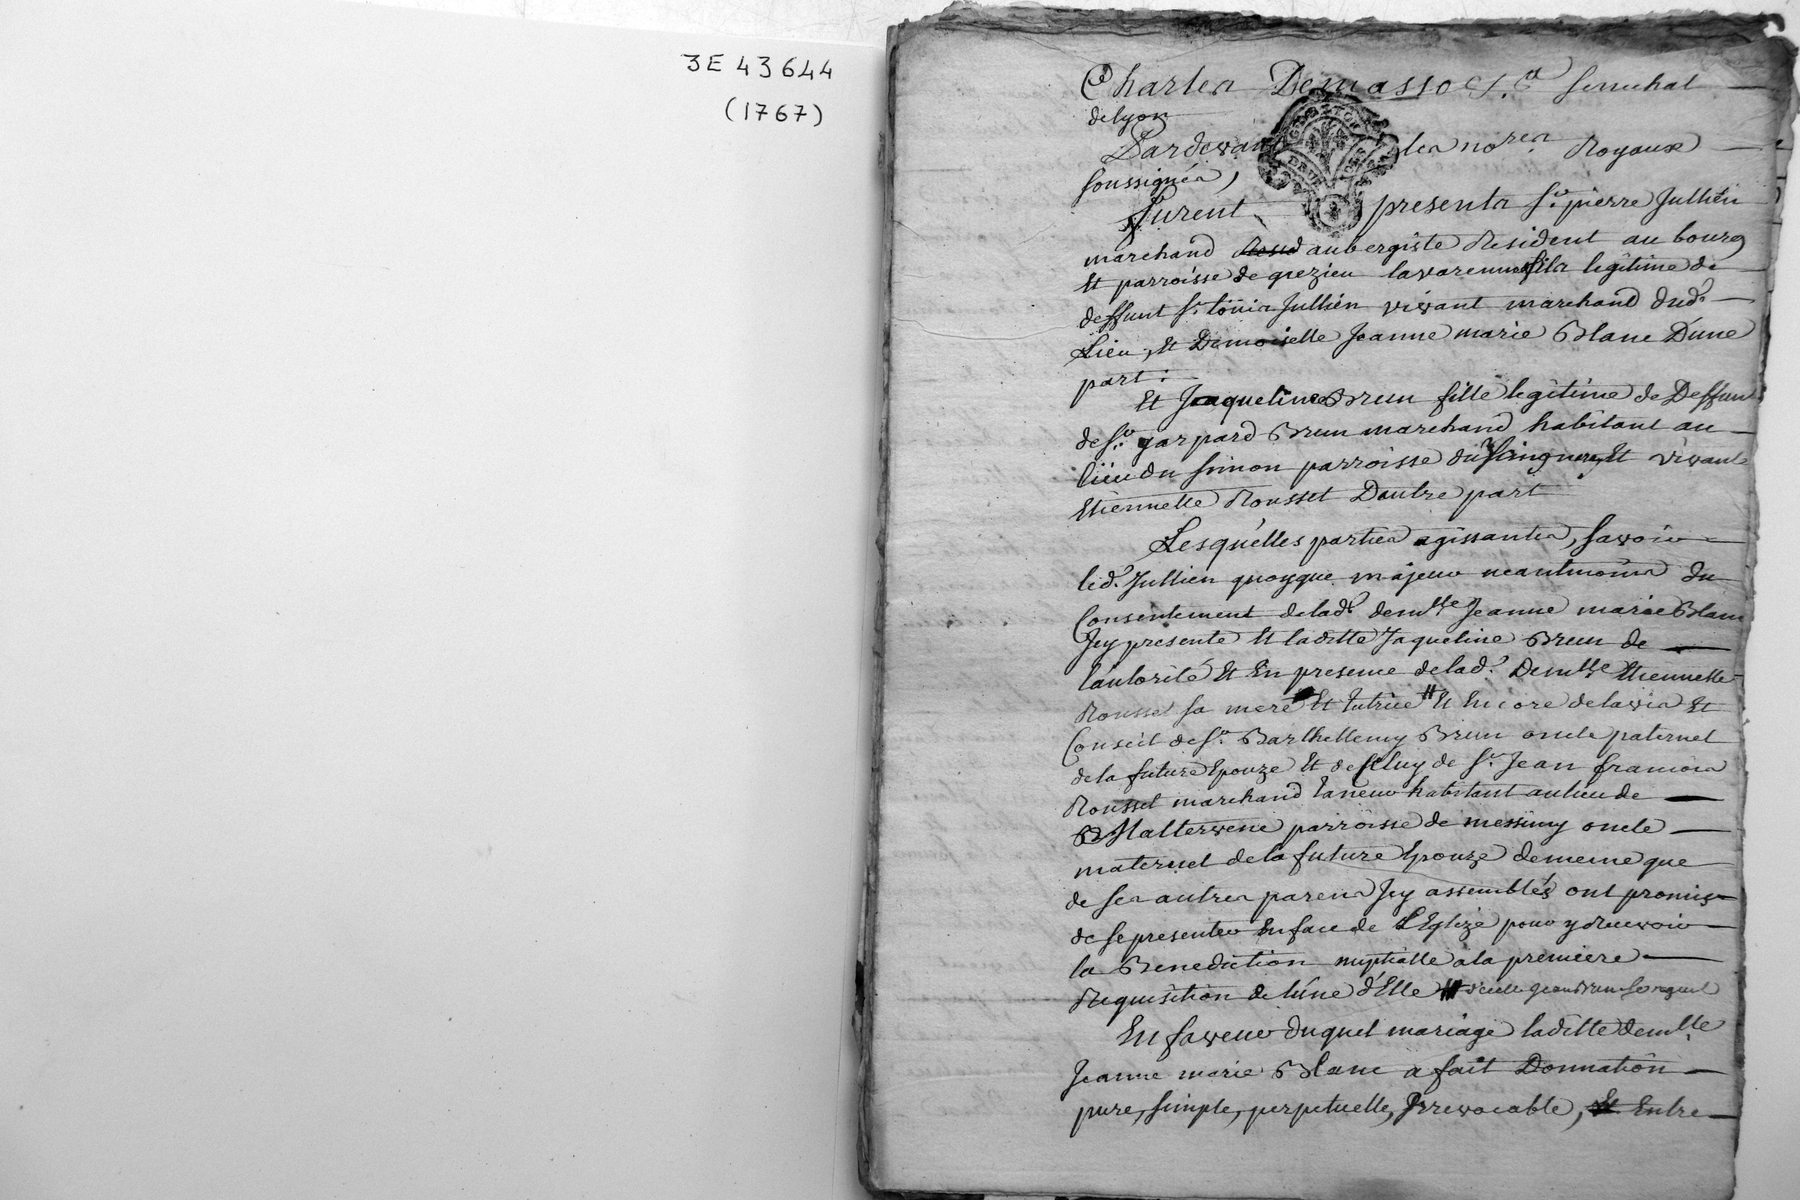 3E 43644
(1767)
Charles Demasso S.r senechal
de lyon
Pardevant les no.res Royaux
soussignés,
furent presents s.r pierre Jullien
marchand aubergiste Resident au bourg
Et parroisse de grezieu lavarenne fils legitime de
deffunt s.r Jullien vivant marchand dud.
Lieu, Et Demoiselle Jeanne marie Blanc D'une
part.
Et Jaqueline Brun fille legitime de Deffunt
de s.r gaspard Brun marchand habitant au
lieu du simon parroisse Et vivante
Etiennette Rousset D'autre part
Lesquelles parties agissantes, savoir
led. Jullien quoyque majeur neantmoins du
Consentement de lad. dem.lle Jeanne marie Blanc
Icy presente Et laditte Jaqueline Brun de
l'autorité Et En presence de lad. Dem.lle Etiennette
Rousset sa mere Et tutrice # Et Encore de lavis Et
Conseil de s.r Barthellemy Brun oncle paternel
de la future Epouze Et de Celuy de s.r Jean francois
Rousset marchand taneur habitant au lieu de
Malterverne parroisse de messimy oncle
maternel de la future Epouze de meme que
de ses autres parens Icy assemblés ont promis
de se presenter En face de L'Eglize pour y Recevoir
la Benediction nuptialle a la premiere
Requisition de l'une d'Elle #
En faveur duquel mariage laditte dem.lle
Jeanne marie Blanc a fait Donnation
pure, simple, perpetuelle, Irrevocable, Et Entre